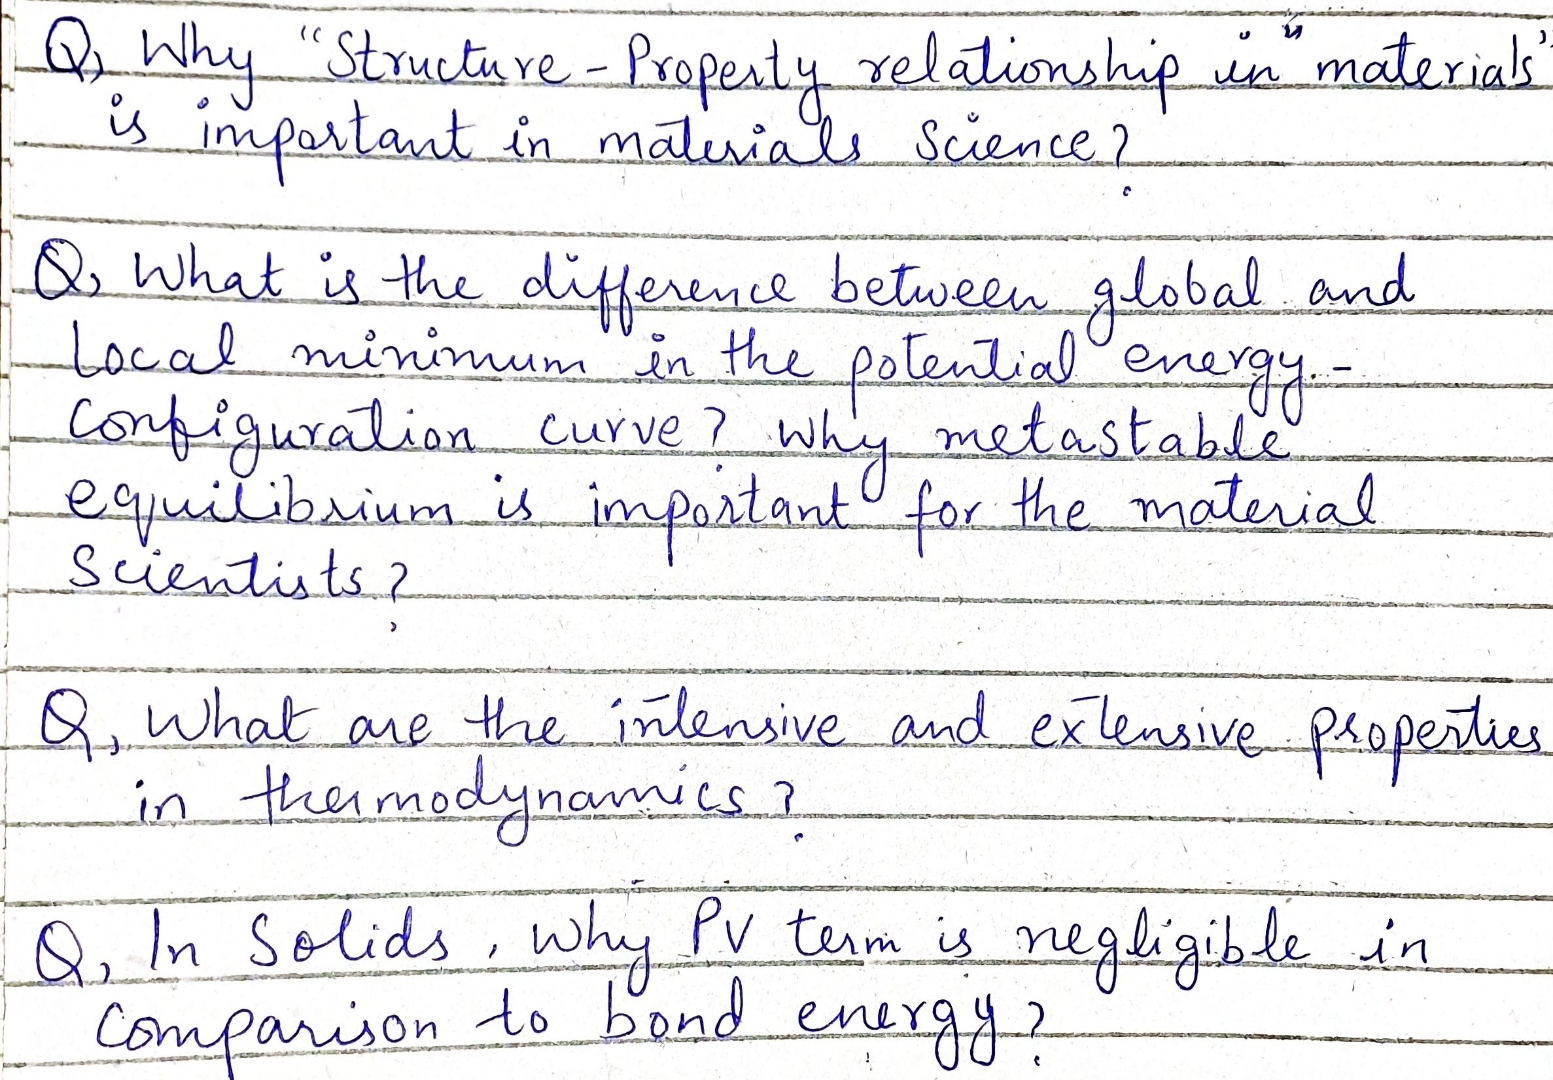 Q, Why "Structure - Property relationship in materials"
is important in materials Science?
Q, What is the difference between global and
Local minimum in the potential energy -
configuration curve? Why metastable
equilibrium is important for the material
Scientists?
Q, What are the intensive and extensive properties
in thermodynamics?
Q, In Solids, why PV term is negligible in
Comparison to bond energy?